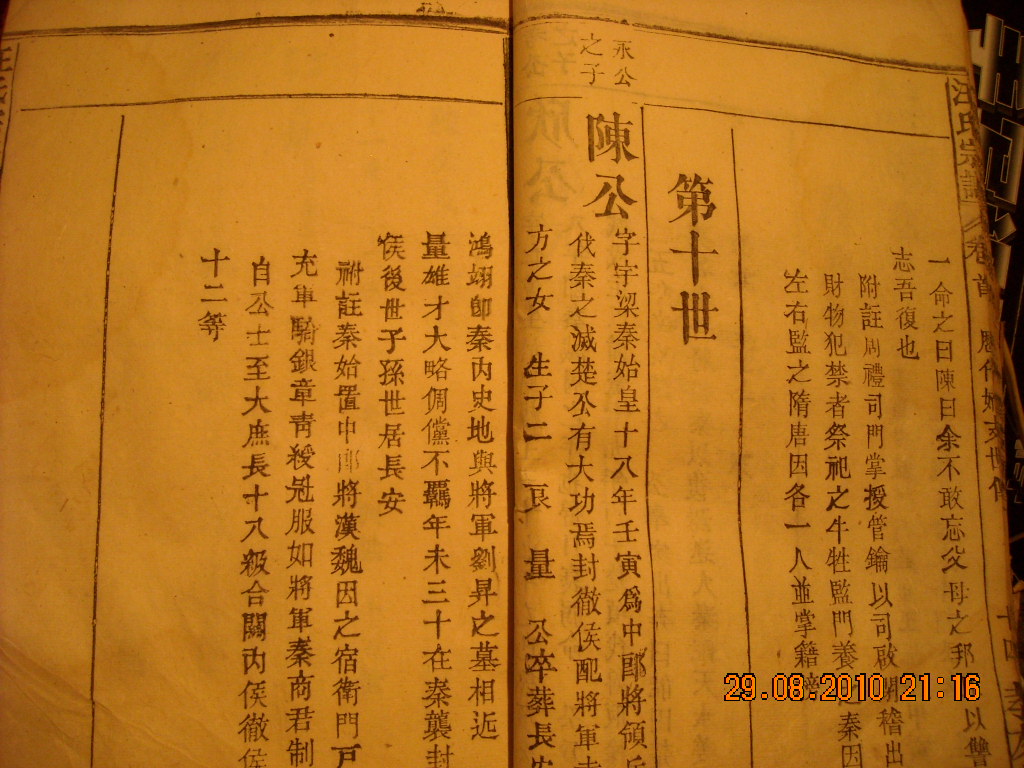 汪氏宗譜 卷首 歷代始支世傳 十四
一命之曰陳曰余不敢忘父母之邦以讐
志吾復也
附註周禮司門掌授管鑰以司啟閉稽出
財物犯禁者祭祀之牛牲監門養之秦因
左右監之隋唐因各一人並掌籍
第十世
永公
之子
陳公
字宇梁秦始皇十八年壬寅爲中郎將領兵
伐秦之滅楚公有大功焉封徹侯配將軍
方之女 生子二 良 量 公卒葬長安
鴻翊郎秦內史地與將軍劉昇之墓相近
量雄才大略倜儻不羈年未三十在秦襲封
侯後世子孫世居長安
附註秦始置中郎將漢魏因之宿衛門戶
充車騎銀章靑綬冠服如將軍秦商君制
自公士至大庶長十八級合關內侯徹侯
十二等
29.08.2010 21:16